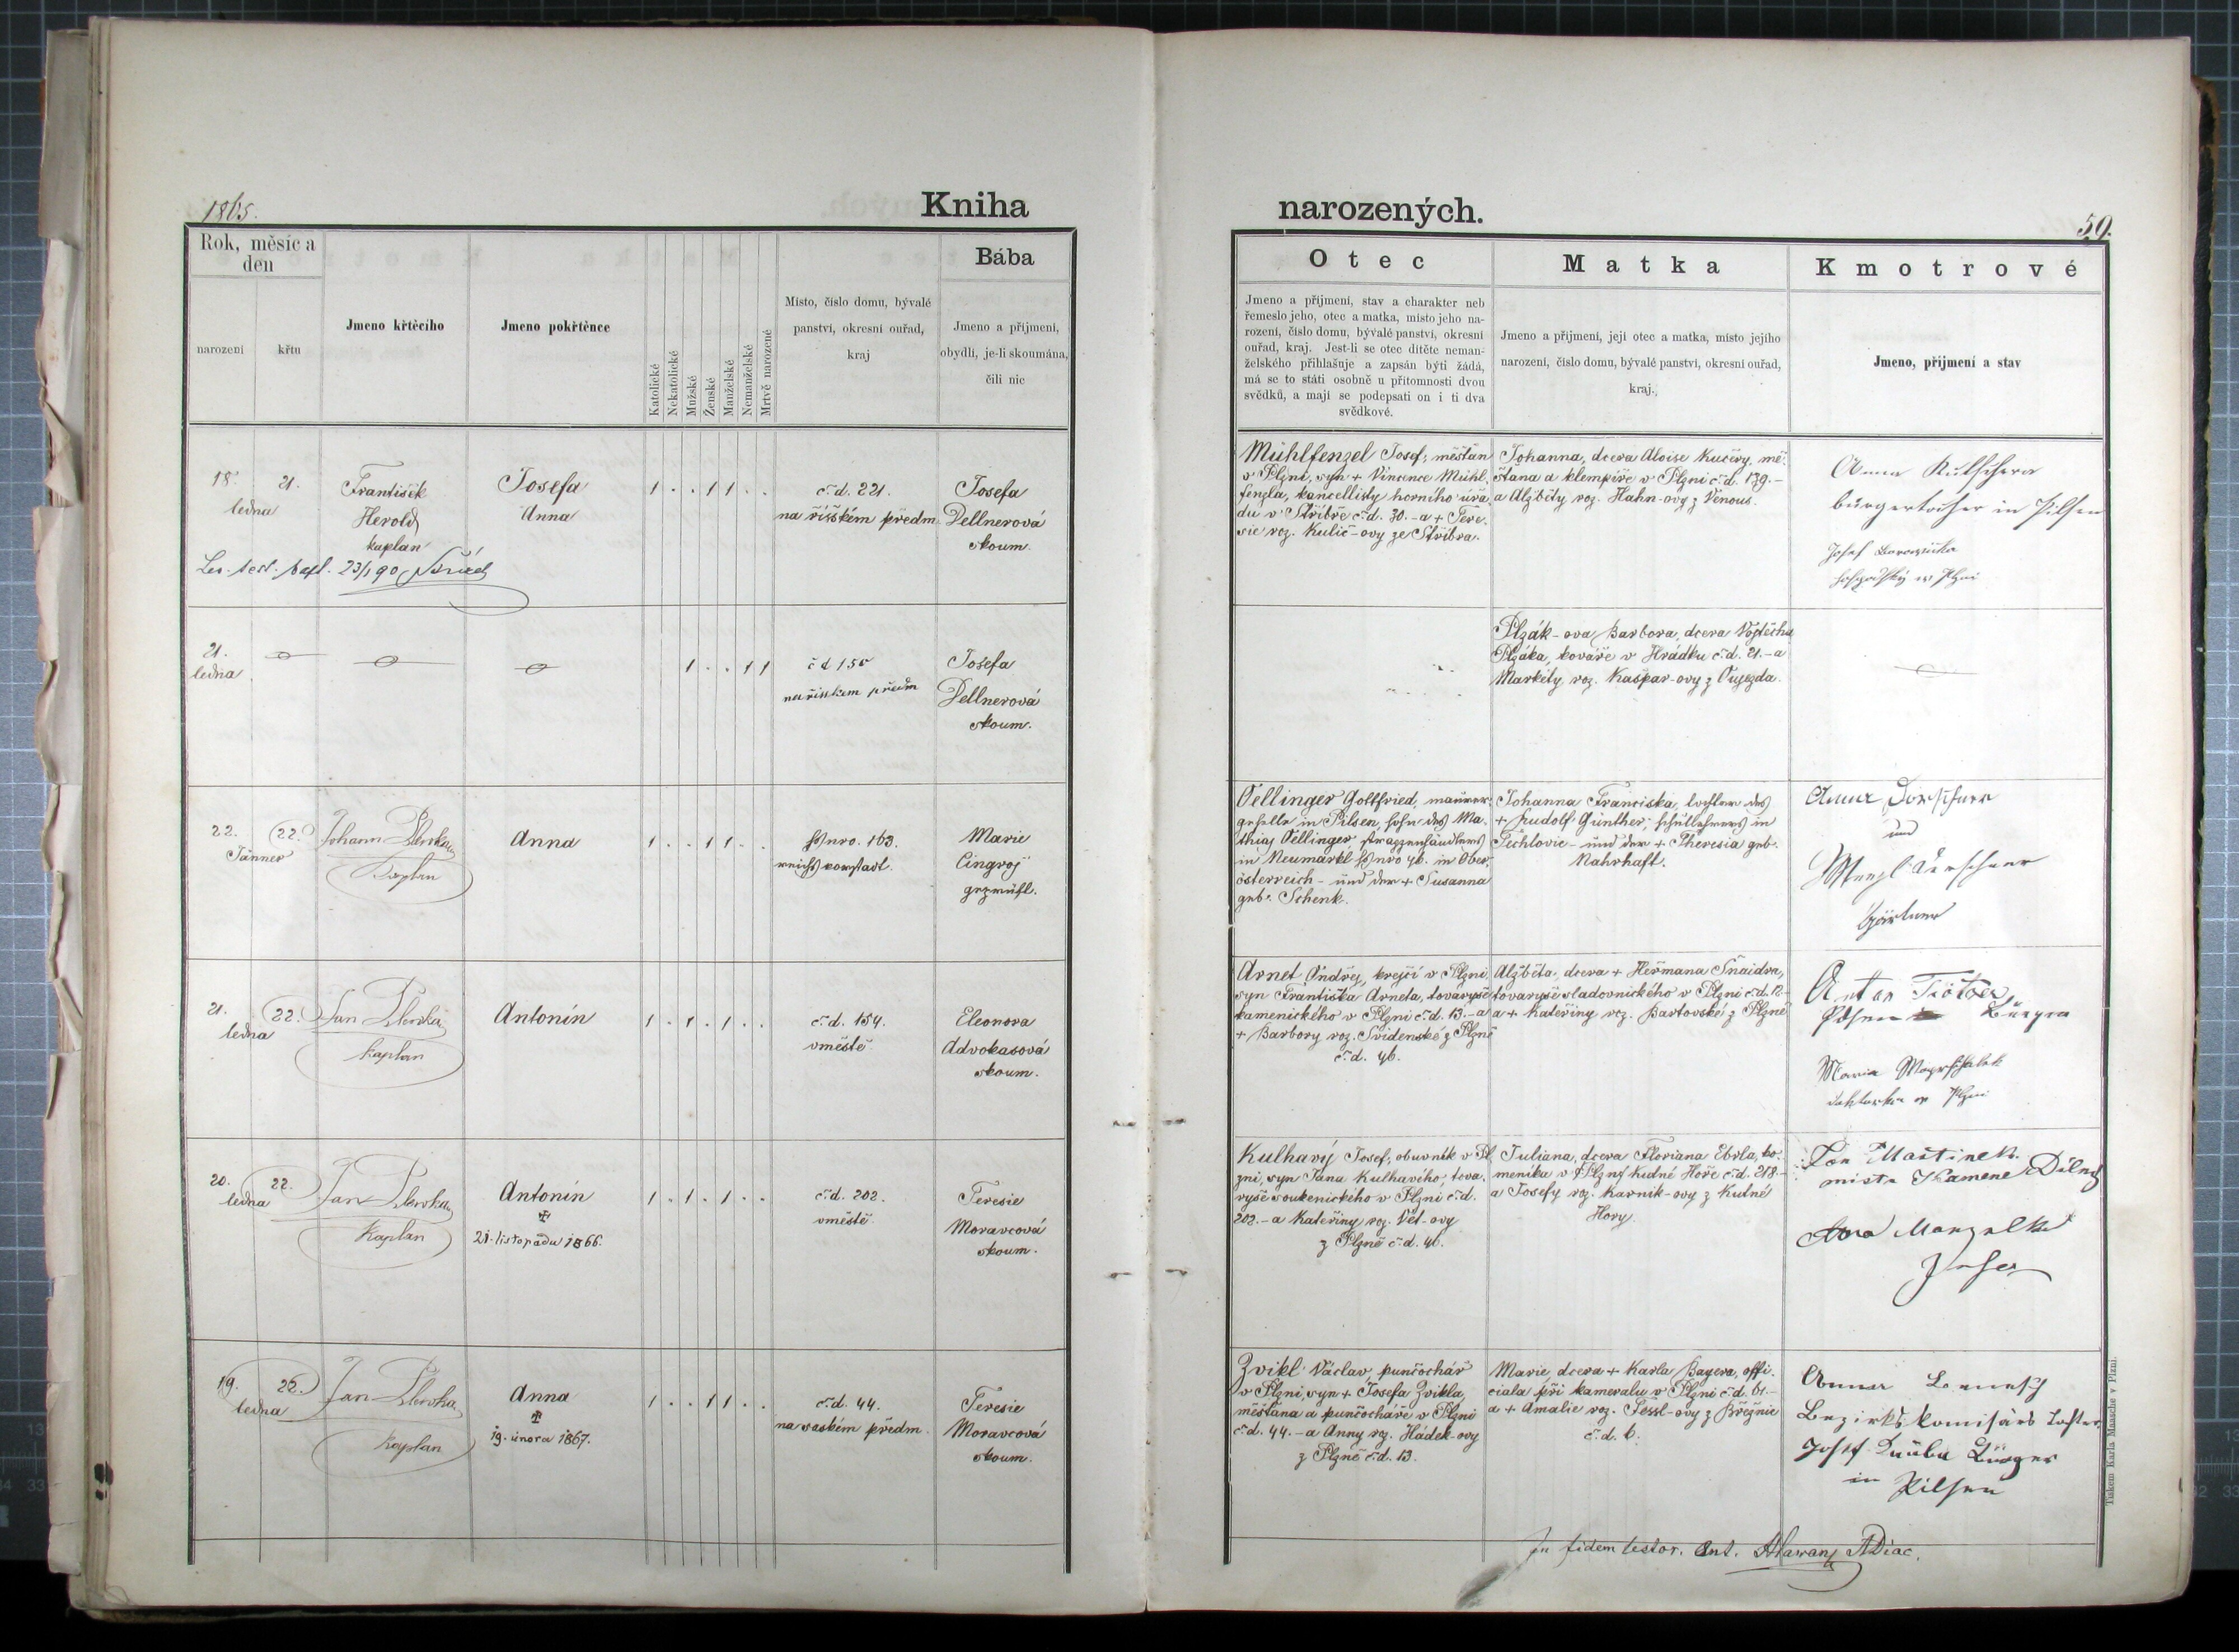 1865.
Kniha
narozených.
59.
Rok, měsíc a
den
narození
křtu
Jmeno křtěcího
Jmeno pokřtěnce
Katolické
Nekatolické
Mužské
Ženské
Manželské
Nemanželské
Mrtvě narozené
Místo, číslo domu, bývalé
panství, okresní ouřad,
kraj
Bába
Jmeno a příjmení,
obydlí, je-li skoumána,
čili nic
Otec
Jmeno a příjmení, stav a charakter neb
řemeslo jeho, otec a matka, místo jeho na-
rození, číslo domu, bývalé panství, okresní
ouřad, kraj. Jest-li se otec dítěte neman-
želského přihlašuje a zapsán býti žádá,
má se to státi osobně u přítomnosti dvou
svědků, a mají se podepsati on i ti dva
svědkové.
Matka
Jmeno a příjmení, její otec a matka, místo jejího
narození, číslo domu, bývalé panství, okresní ouřad,
kraj.
Kmotrové
Jmeno, příjmení a stav
18. 21.
ledna
František
Herold
kaplan
Josefa
Anna
1 . . 1 1 . .
č. d. 221.
na říšském předm.
Josefa
Dellnerová
skoum.
23/1 90
Mühlfenzel Josef, měšťan
v Plzni, syn + Vincence Mühl-
fenzla, kancellisty horního úřa-
du v Stříbře č. d. 30. - a + Tere-
sie roz. Kulič-ovy ze Stříbra.
Johanna, dcera Aloise Kučery, mě-
šťana a klempíře v Plzni č. d. 139. -
a Alžběty roz. Hahn-ovy z Venous.
Anna Kutschera
bürgertochter in Pilsen
Josef
21.
ledna
1 . . 1 1
č d 155
na říšském předm
Josefa
Dellnerová
skoum.
Plzák-ova Barbora, dcera Vojtěcha
Plzáka, kováře v Hrádku č. d. 21. - a
Markéty roz. Kašpar-ovy z Oujezda.
22. 22.
Jänner
Johann
Kaplan
Anna
1 . . 1 1 . .
Nnro. 163.
reichsvorstadt.
Marie
Cingroš
geprüft.
Oellinger Gottfried, maurer-
geselle in Pilsen, sohn des Ma-
thias Oellinger,
in Neumarkt Nnro 46. in Ober-
österreich - und der + Susanna
geb. Schenk.
Johanna Franciska, tochter des
+ Rudolf Günther, schullehrers in
Techlovic - und der + Theresia geb.
Nahrhaft.
Anna
und
Gärtner
21. 22.
ledna
Jan
Kaplan
Antonín
1 . 1 . 1 . .
č. d. 154.
v městě.
Eleonora
Advokasová
skoum.
Arnet Ondřej, krejčí v Plzni,
syn Františka Arneta, tovaryše
kamenického v Plzni č. d. 13. - a
+ Barbory roz. Svidenské z Plzně
č. d. 46.
Alžběta, dcera + Heřmana Šnaidra,
tovaryše sladovnického v Plzni č. d. 12. -
a + Kateřiny roz. Bartovské z Plzně
Anton
Maria
v Plzni
20. 22.
ledna
Jan
Kaplan
Antonín
✠
21. listopadu 1866.
1 . 1 . 1 . .
č. d. 202.
v městě.
Teresie
Moravcová
skoum.
Kulhavý Josef, obuvník v Pl-
zni, syn Jana Kulhavého, tova-
ryše soukenického v Plzni č. d.
202. - a Kateřiny roz. Vet-ovy
z Plzně č. d. 46.
Juliana, dcera Floriana Ebrla, ko-
meníka v Kutné Hoře č. d. 218. -
a Josefy roz. Karník-ovy z Kutné
Hory.
Jan Martinek
19. 22.
ledna
Jan
Kaplan
Anna
✠
19. února 1867.
1 . . 1 1 . .
č. d. 44.
na saském předm.
Teresie
Moravcová
skoum.
Zvikl Václav, punčochář
v Plzni, syn + Josefa Zvikla,
měšťana a punčocháře v Plzni
č. d. 44. - a Anny roz. Hádek-ovy
z Plzně č. d. 13.
Marie, dcera + Karla Bayera, offi-
ciala při kameralu v Plzni č. d. 61. -
a + Amalie roz. Sessl-ovy z Březnic
č. d. 6.
Anna
Bezirkskomisärs tochter
Josef Bürger
in Pilsen
In fidem testor. Ant.
Tiskem Karla Maasche v Plzni.